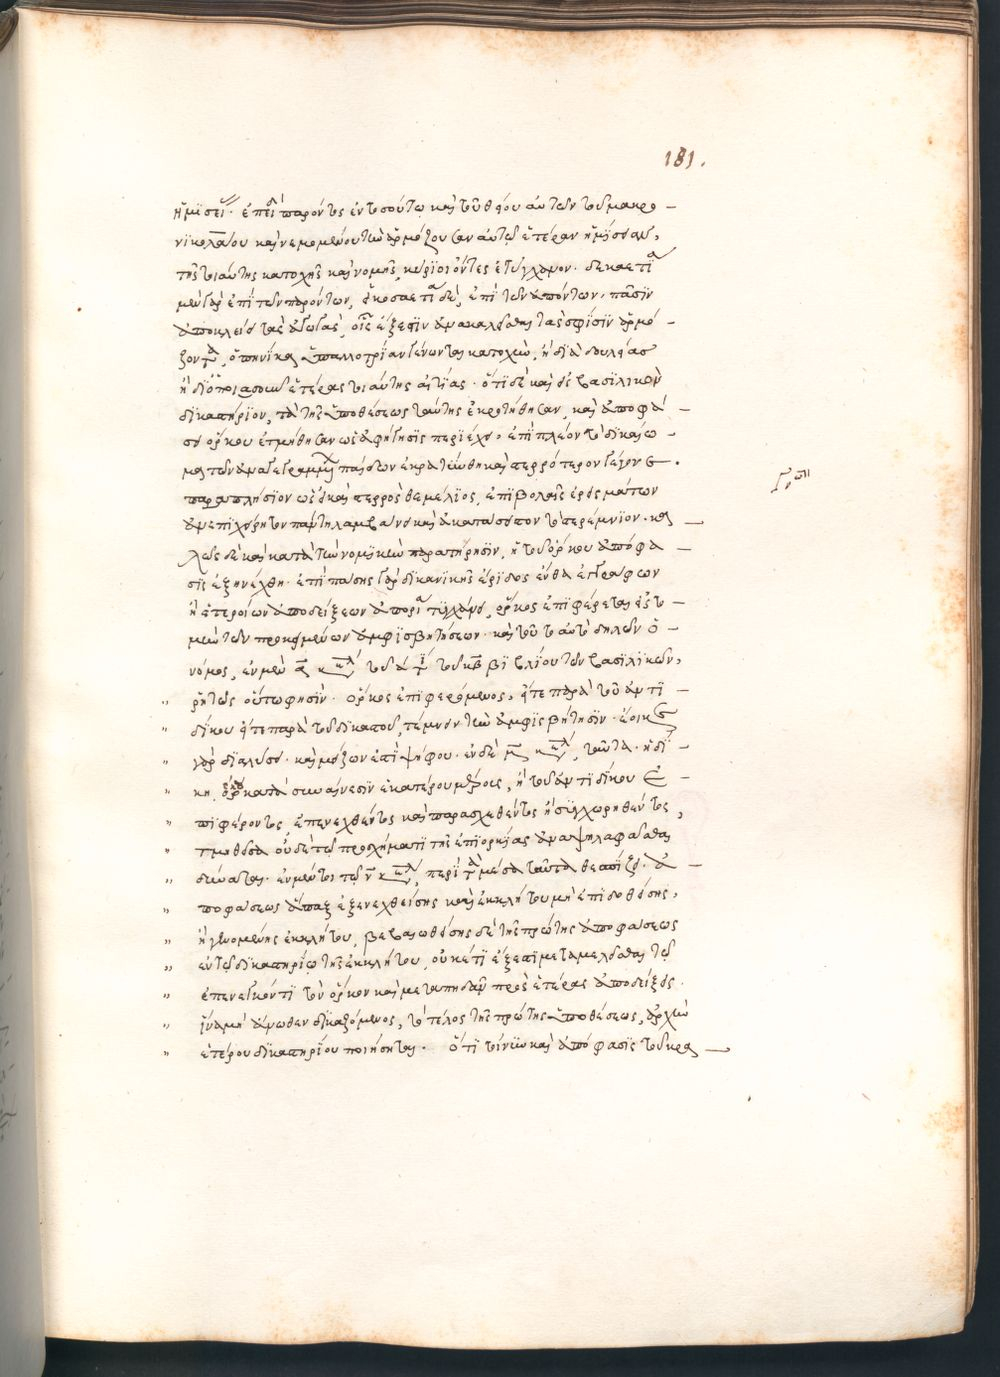 181.
ἡμίσει. ἐπεὶ παρόντος ἐν τοσούτω καὶ τοῦ θείου αὐτῶν τοῦ μακρο –
νικολάου καὶ νεμομένου τὴν ἁρμόζουσαν αὐτῷ ἑτέραν ἡμίσειαν,
τῆς τοιαύτης κατοχῆς καὶ νομῆς, κύριοι ὄντες ἐτύγχανον. δεκαετία
μὲν γὰρ ἐπὶ τῶν παρόντων, εἰκοσαετία δὲ, ἐπὶ τῶν ἀπόντων, πᾶσιν
ἀποκλείει τὰς ἀγωγὰς, οἷς ἔξεστιν ἀνακαλεῖσθαι τὰ σφίσιν ἁρμό –
ζοντα, ὁπηνίκα ὑπ' ἀλλοτρίαν γένωνται κατοχὴν, ἢ διὰ δουλείας
ἢ δι' ὁποιασοῦν ἑτέρας τοιαύτης αἰτίας. ὅτι δὲ καὶ εἰς βασιλικὸν
δικαστήριον, τὰ τῆς ὑποθέσεως ταύτης ἐκροτήθησαν, καὶ ἀποφά –
σει ὅρκου ἐτμήθησαν ὡς ἀφήγησις περιέχει. ἐπὶ πλέον τὸ δικαίω –
μα τῶν ἀναγεγραμμένων παίδων ἐκρατύνθη καὶ στερρότερον γέγονε.
παραπλήσιον ὡς εἰ καὶ στερρὸς θεμέλιος, ἐπιβολαῖς ἐρεισμάτων
ἀνεπιχείρητον παντὶ λαμβάνει καὶ ἀκατάσειστον τὸ περέμνιον. κα –
λῶς δὲ καὶ κατὰ τὴν νομικὴν παρατήρησιν, ἡ τοῦ ὅρκου ἀπόφα –
σις ἐξηνέχθη. ἐπὶ πάσης γὰρ δικανικῆς ἔριδος ἔνθα ἐγγράφων
ἢ ἑτεροίων ἀποδείξεων ἀπορία τυγχάνει, ὅρκος ἐπιφέρεται
τῶν προκειμένων ἀμφισβητήσεων. καὶ τοῦτ' αὐτὸ δηλῶν ὁ –
νόμος, ἐν μὲν κεφαλ τοῦ τοῦ κβ βιβλίου τῶν βασιλικῶν,
ῥητῶς οὕτω φησίν. ὅρκος ἐπιφερόμενος, εἴτε παρὰ τοῦ ἀντι –
δίκου εἴτε παρὰ τοῦ δικαστοῦ, τέμνει τὴν ἀμφισβήτησιν. ἔοικε
γὰρ διαλύσει. καὶ μείζων ἐστὶ ψήφου. ἐν δὲ κεφαλ, ταῦτα. ἡ δί –
κη ὅρκω κατὰ συναίνεσιν ἑκατέρου μέρους, ἢ τοῦ ἀντιδίκου ἐ –
πιφέροντος, ἐπενεχθέντος καὶ παρασχεθέντος ἢ συγχωρηθέντος,
τμηθεῖσα οὐδὲ τῷ προσχήματι τῆς ἐπιορκίας ἀναψηλαφᾶσθαι
δύναται. ἐν μέντοι τῷ κεφαλ, περὶ τὰ μέσα ταῦτα θεσπίζει. ἀ –
ποφάσεως ἅπαξ ἐξενεχθείσης καὶ ἐκκλήτου μὴ ἐπιδοθείσης,
ἢ γενομένης ἐκκλήτου, βεβαιωθείσης δὲ τῆς πρώτης ἀποφάσεως
ἐν τῷ δικαστηρίω τῆς ἐκκλήτου, οὐκέτι ἔξεστι μεταμελεῖσθαι τῷ
ἐπενεγκόντι τὸν ὅρκον καὶ μεταπηδᾶν πρὸς ἑτέρας ἀποδείξεις.
ἵνα μὴ ἄνωθεν δικαζόμενος, τὸ τέλος τῆς πρώτης ὑποθέσεως, ἀρχὴν
ἑτέρου δικαστηρίου ποιήσηται. ὅτι τοίνυν καὶ ἀπόφασις τοῦ κρα –